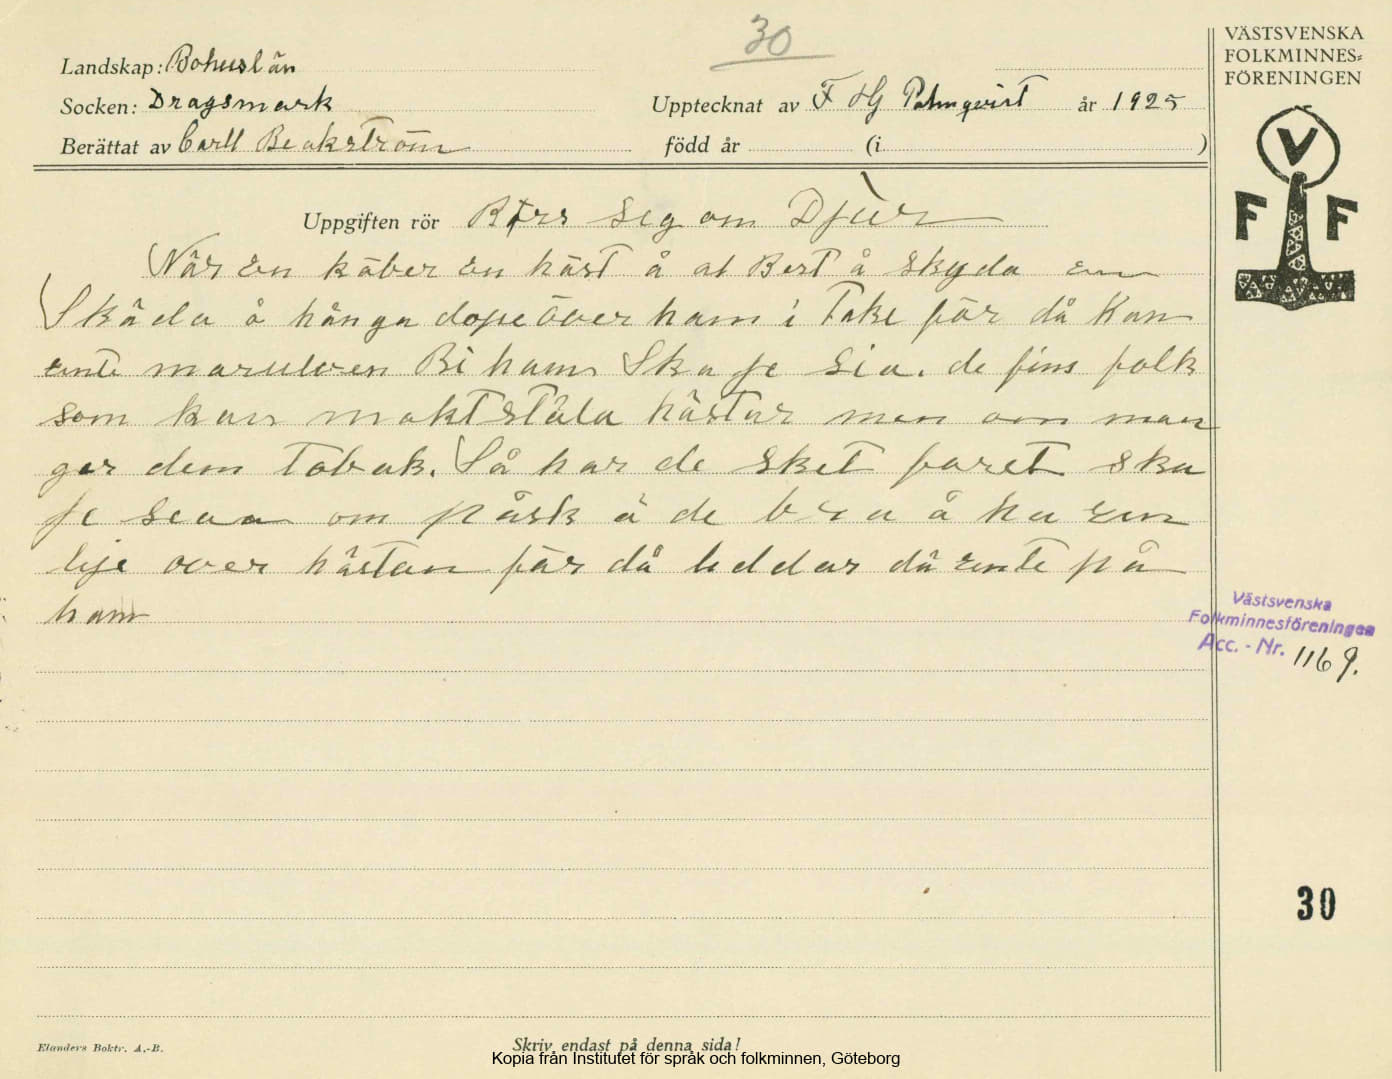 30
VÄSTSVENSKA
FOLKMINNES=
FÖRENINGEN
Landskap: Bohuslän
Socken: Dragsmark
Upptecknat av F HG Palmqvist år 1925
Berättat av Carll Beckström
född år (i )
Uppgiften rör sig om Djur
V
F F
När en köber en häst å at Best å skyda en
Skäda å hänga dope över ham i Take för då Kan
ente maruloen Bi ham Ska je Sia. de fins folk
som kan maktstäla hästar men om man
ger dem Tobak. Så har de sket faret ska
je seia om påsk ä de bra å ha en
lije over hästan för då leddar då ente på
ham
Västsvenska
Folkminnesföreningen
Acc. - Nr. 1169.
30
Elanders Boktr. A.-B.
Skriv endast på denna sida!
Kopia från Institutet för språk och folkminnen, Göteborg